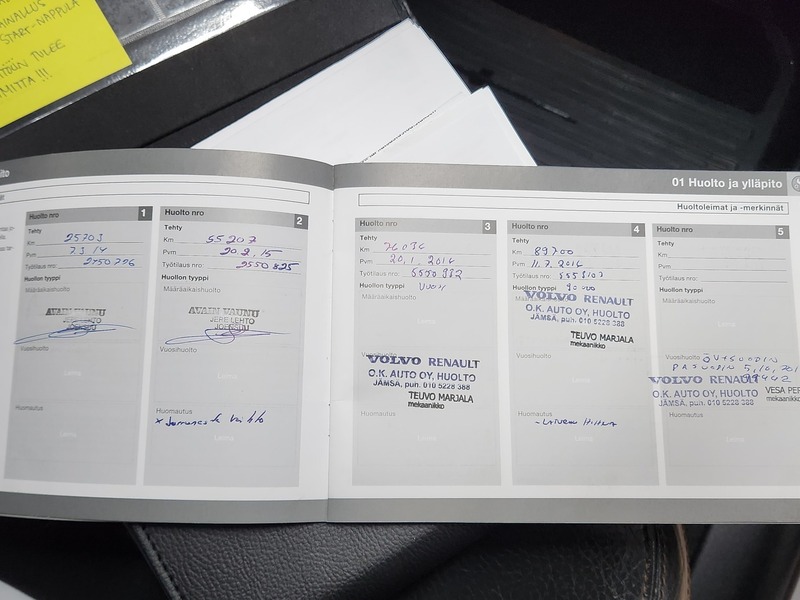 START-NAPPULA
TULEE
01 Huolto ja ylläpito
Huoltoleimat ja -merkinnät
Huolto nro 1
Tehty
Km 25703
Pvm 7.3.14
Työtilaus nro: 2450796
Huollon tyyppi
Määräaikaishuolto
AVAIN VAUNU
JOENSUU
Vuosihuolto
Leima
Huomautus
Leima
Huolto nro 2
Tehty
Km 55207
Pvm 20.2.15
Työtilaus nro: 2550825
Huollon tyyppi
Määräaikaishuolto
AVAIN VAUNU
JERE LEHTO
JOENSUU
Vuosihuolto
Leima
Huomautus
Leima
Huolto nro 3
Tehty
Km
Pvm 20.1.2016
Työtilaus nro:
Huollon tyyppi
Määräaikaishuolto
Leima
Vuosihuolto
VOLVO RENAULT
O.K. AUTO OY, HUOLTO
JÄMSÄ, puh. 010 5228 388
TEUVO MARJALA
mekaanikko
Huomautus
Leima
Huolto nro 4
Tehty
Km 89700
Pvm 11.7.2016
Työtilaus nro: 5553107
Huollon tyyppi 90 000
Määräaikaishuolto
VOLVO RENAULT
O.K. AUTO OY, HUOLTO
JÄMSÄ, puh. 010 5228 388
TEUVO MARJALA
mekaanikko
Vuosihuolto
Leima
Huomautus
Leima
Huolto nro 5
Tehty
Km
Pvm
Työtilaus nro:
Huollon tyyppi
Määräaikaishuolto
Leima
Vuosihuolto
VOLVO RENAULT
O.K. AUTO OY, HUOLTO
JÄMSÄ, puh. 010 5228 388
VESA
mekaanikko
Huomautus
Leima